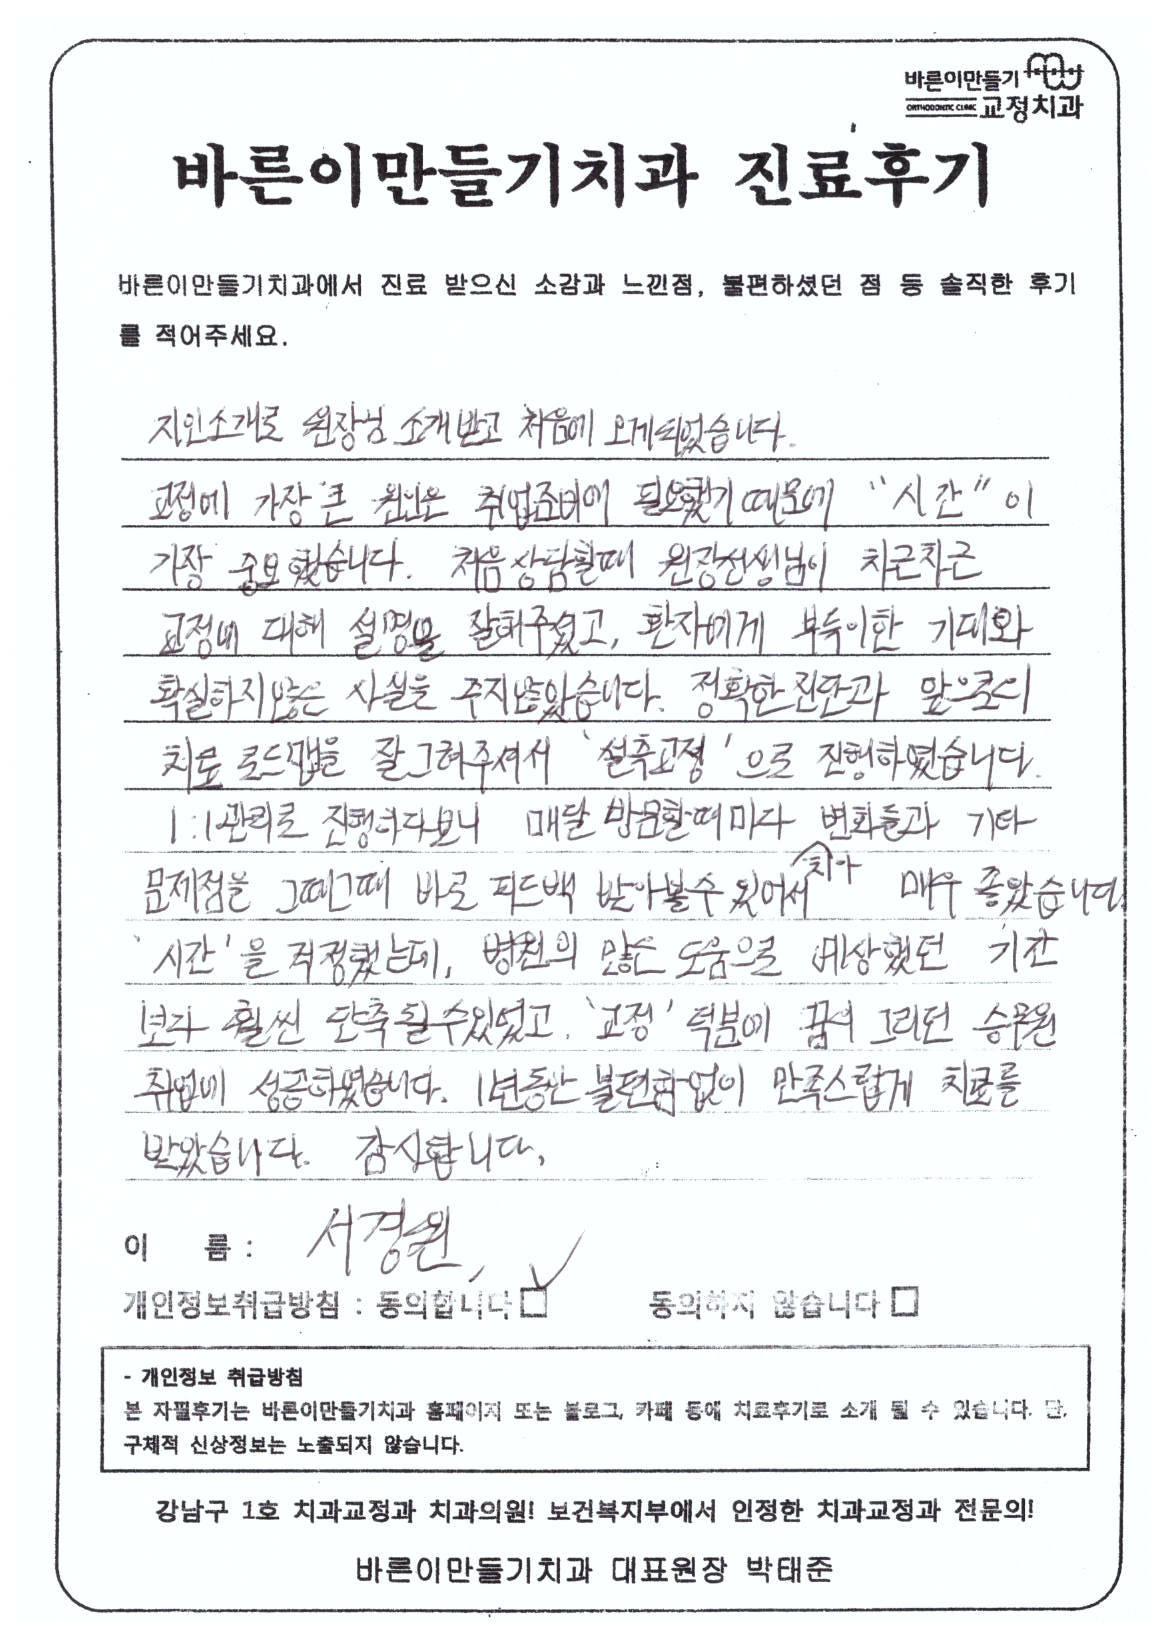 바른이만들기
ORTHODONTIC CLINIC 교정치과
바른이만들기치과 진료후기
바른이만들기치과에서 진료 받으신 소감과 느낀점, 불편하셨던 점 등 솔직한 후기
를 적어주세요.
지인소개로 원장님 소개받고 처음에 오게되었습니다.
교정에 가장 큰 원인은 취업준비에 필요했기 때문에 "시간"이
가장 중요했습니다. 처음 상담할때 원장선생님이 차근차근
교정에 대해 설명을 잘해주셨고, 환자에게 부득이한 기대와
확실하지않은 사실을 주지않았습니다. 정확한 진단과 앞으로의
치료 로드맵을 잘 그려주셔서 '설측교정'으로 진행하였습니다.
1:1관리로 진행하다보니 매달 방문할때마다 변화들과 기타
치아
문제점을 그때그때 바로 피드백 받아볼수 있어서 매우 좋았습니다.
'시간'을 걱정했는데, 병원의 많은 도움으로 예상했던 기간
보다 훨씬 단축될수있었고. '교정' 덕분에 꿈에 그리던 승무원
취업에 성공하였습니다. 1년동안 불편함없이 만족스럽게 치료를
받았습니다. 감사합니다.
이 름 : 서경원
개인정보취급방침 : 동의합니다 동의하지 않습니다
- 개인정보 취급방침
본 자필후기는 바른이만들기치과 홈페이지 또는 블로그, 카페 등에 치료후기로 소개 될 수 있습니다. 단,
구체적 신상정보는 노출되지 않습니다.
강남구 1호 치과교정과 치과의원! 보건복지부에서 인정한 치과교정과 전문의!
바른이만들기치과 대표원장 박태준